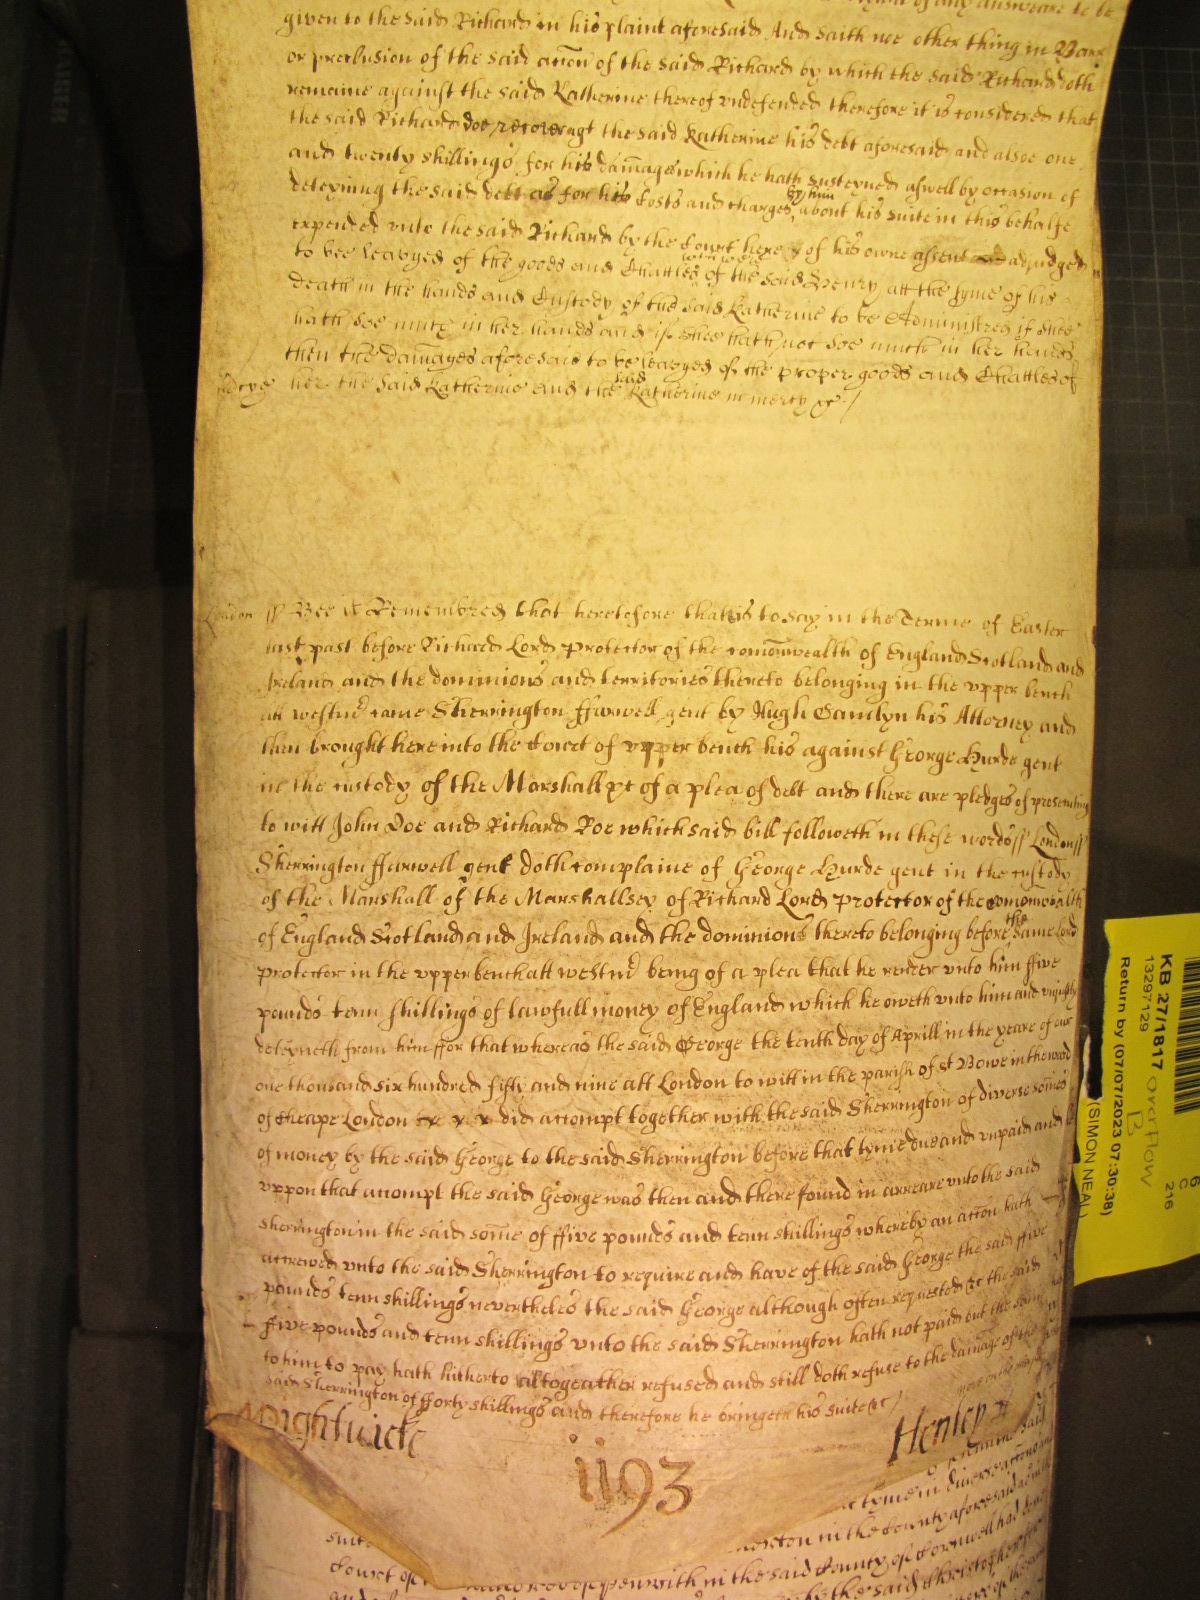 of any answeare to be
given to the said Richard in his plaint aforesaid And saith noe other thing in Barr
or preclusion of the said accon of the said Richard by which the said Richard doth
remaine against the said Katherine thereof undefended therefore it is considered that
the said Richard doe recover agt the said Katherine his debt aforesaid and alsoe one
and twenty shillings for his damages which he hath susteyned aswell by occasion of
deteyning the said debt as for his Costs and charges by him about his suite in this behalfe
expended unto the said Richard by the Court here of his owne assent adjudged
to bee leavyed of the goods and Chattles which were of the said Henry att the tyme of his
death in the hands and Custody of the said Katherine to be Administred if shee
hath soe much in her hands and if shee hath not soe much in her hands
then the damages aforesaid to be leavyed of the proper goods and Chattles of
her the said Katherine and the said Katherine in mercy &c /
London ss Bee it Remembred that heretofore that is to say in the Terme of Easter
last past before Richard Lord Protector of the comonwealth of England Scotland and
Ireland and the dominions and territories thereto belonging in the upper bench
att westmr came Sherrington ffarwell gent by Hugh Gamlyn his Attorney and
then brought here into the Court of upper bench his against George Hurde gent
in the custody of the Marshall &c of a plea of debt and there are pledges of prosecuting
to witt John Doe and Richard Roe which said bill followeth in these words ss London ss
Sherrington ffarwell gent doth complaine of George Hurde gent in the custody
of the Marshall of the Marshallsey of Richard Lord Protector of the comonwealth
of England Scotland and Ireland and the dominions thereto belonging before the same Lord
protector in the upper bench att westmr being of a plea that he render unto him ffive
pounds tenn shillings of lawfull money of England which he oweth unto him and uniustly
deteyneth from him ffor that whereas the said George the tenth day of Aprill in the yeare of our
one thousand six hundred fifty and nine att London to witt in the parish of St Bowe in the ward
of Cheape London &c did accompt together with the said Sherrington of diverse somes
of money by the said George to the said Sherrington before that tyme due and unpaid and
uppon that accompt the said George was then and there found in arreare unto the said
Sherrington in the said some of ffive pounds and tenn shillings whereby an accon hath
accrewed unto the said Sherrington to require and have of the said George the said ffive
pounds tenn shillings nevertheles the said George although often requested &c the said
ffive pounds and tenn shillings unto the said Sherrington hath not paid but the same
to him to pay hath hitherto altogeather refused and still doth refuse to the damage of the
said Sherrington of fforty shillings and therefore he bringeth his suite &c /
Wightwicke
Henley
1193
tyme in diverse accons
in the County aforesaid
Court of
penwith in the said County of Cornwell had
by the said Christopher